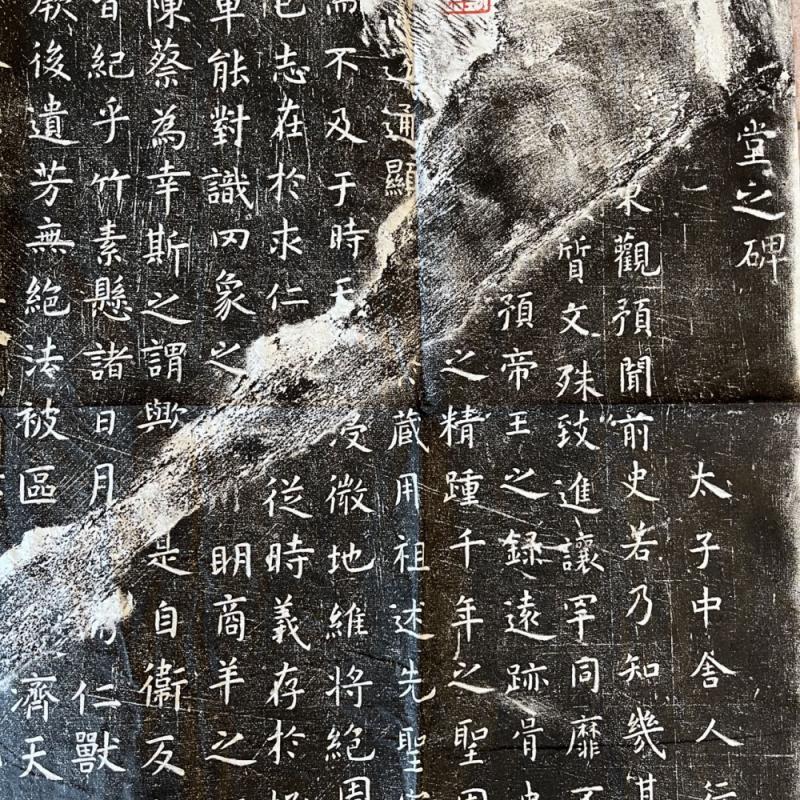 堂之碑
太子中舍人行
東觀預聞前史若乃知幾其
質文殊致進讓罕同靡不
預帝王之錄遠跡胥史
之精踵千年之聖固
通顯 藏用祖述先聖
為不及于時天 浸微地維將絕周
已志在於求仁 從時義存於
車能對識罔象之 明商羊之
陳蔡為幸斯之謂歟 是自衛反
紀乎竹素懸諸日月 仁獸
厥後遺芳無絕法被區 濟天